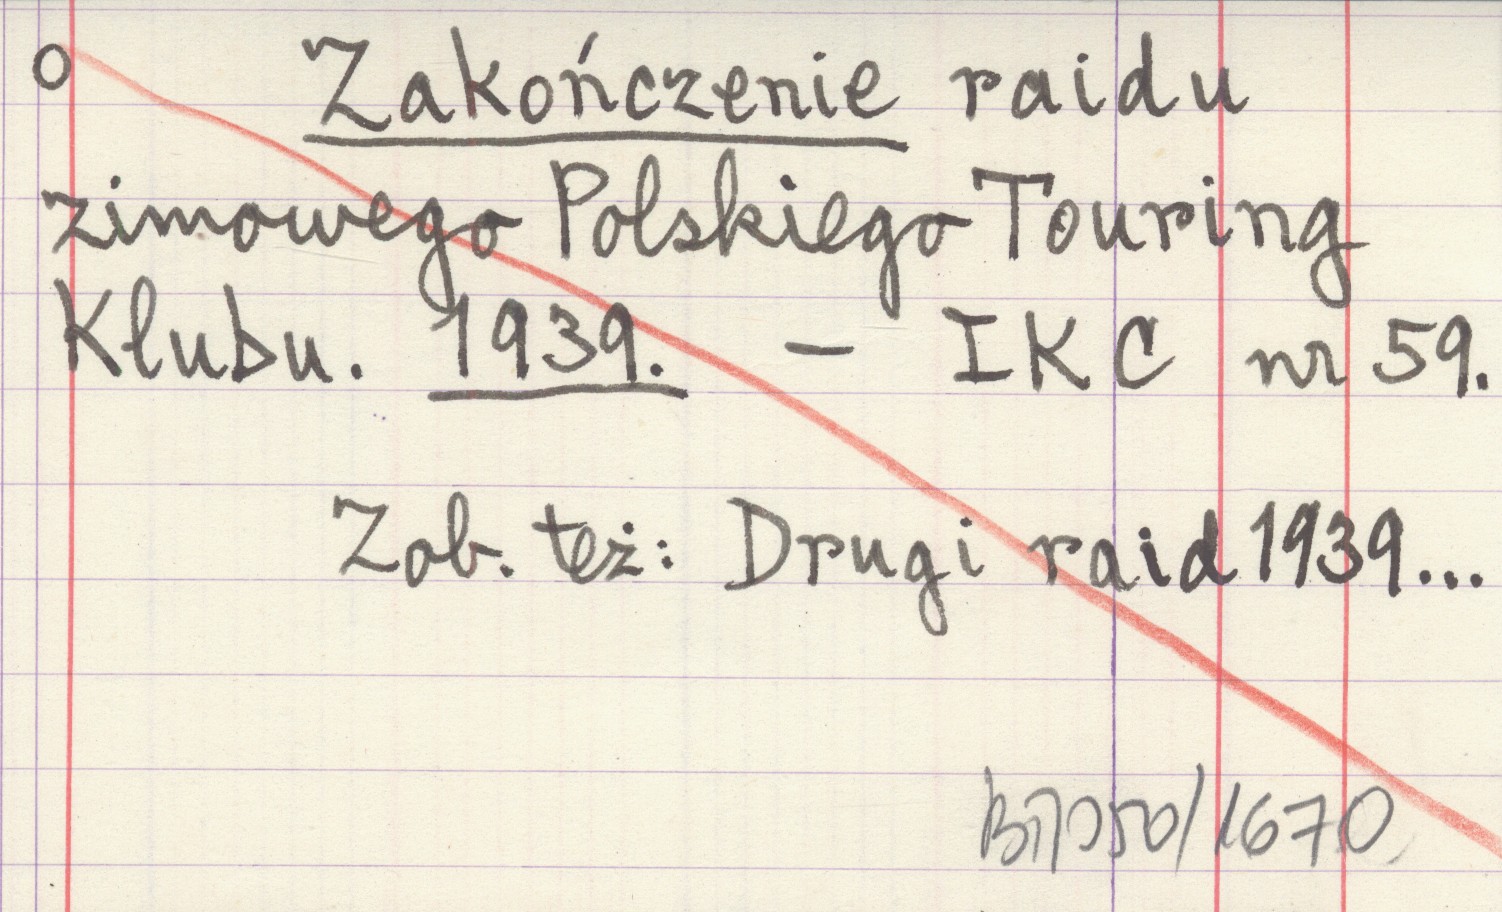 o Zakończenie raidu
zimowego Polskiego Touring
Klubu. 1939. — IKC nr 59.
Zob. też: Drugi raid 1939...